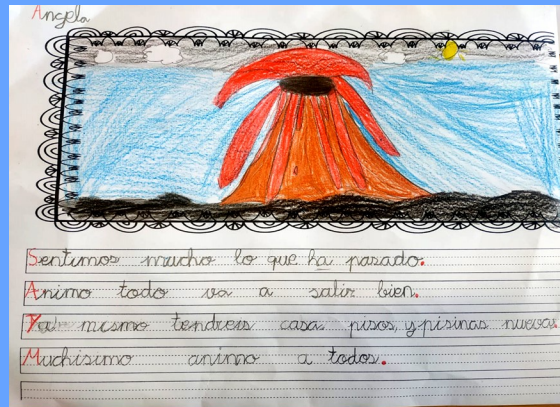 Angela
Sentimos mucho lo que ha pasado.
Animo todo va a salir bien.
mismo tendreis casa pisos, y pisinas nuevas
Muchisimo animo a todos.